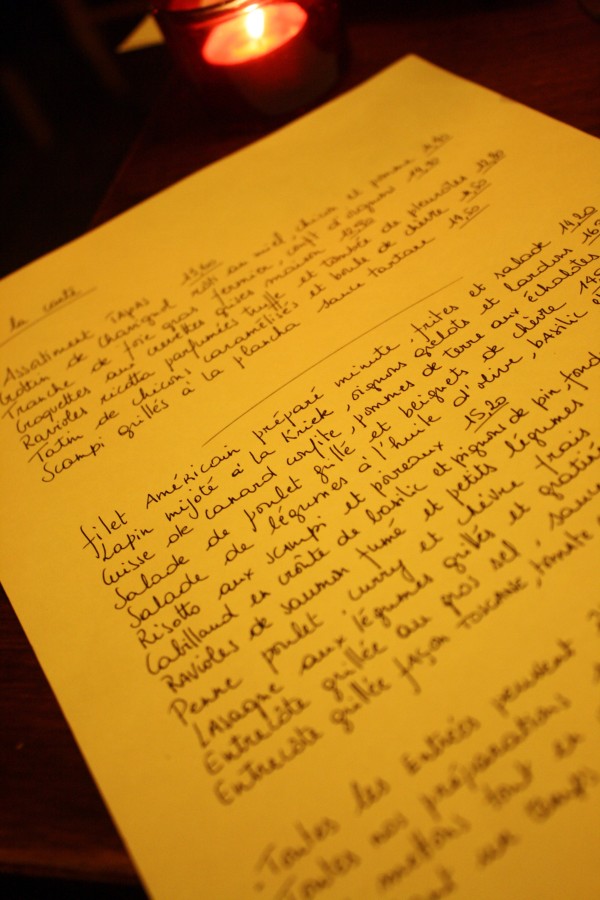 la carte
Assortiment Tapas 13,80
Gratin de Chavignol rôti au miel, chicon et pomme
Tranche de foie gras fermier, confit d'oignons
Croquettes aux crevettes grises maison
Ravioles ricotta parfumées truffe et tombée de pleurotes
Tatin de chicons caramélisés et brulé de chèvre
Scampi grillés à la plancha sauce tartare 14,50
filet Américain préparé minute, frites et salade 14,20
Lapin mijoté à la Kriek, oignons grelots et lardons
Cuisse de canard confite, pommes de terre aux échalotes
Salade de poulet grillé et beignets de chèvre
Salade de légumes à l'huile d'olive, basilic et
Risotto aux scampi et poireaux 15,20
Cabillaud en croûte de basilic et pignons de pin, fond
Ravioles de saumon fumé et petits légumes
Penne poulet, curry et chèvre frais
Lasagne aux légumes grillés et gratiné
Entrecôte grillée au gros sel, sauce
Entrecôte grillée façon TOSCANE, tomate
Toutes les Entrées peuvent
Toutes nos préparations
mettons tout en
un temps